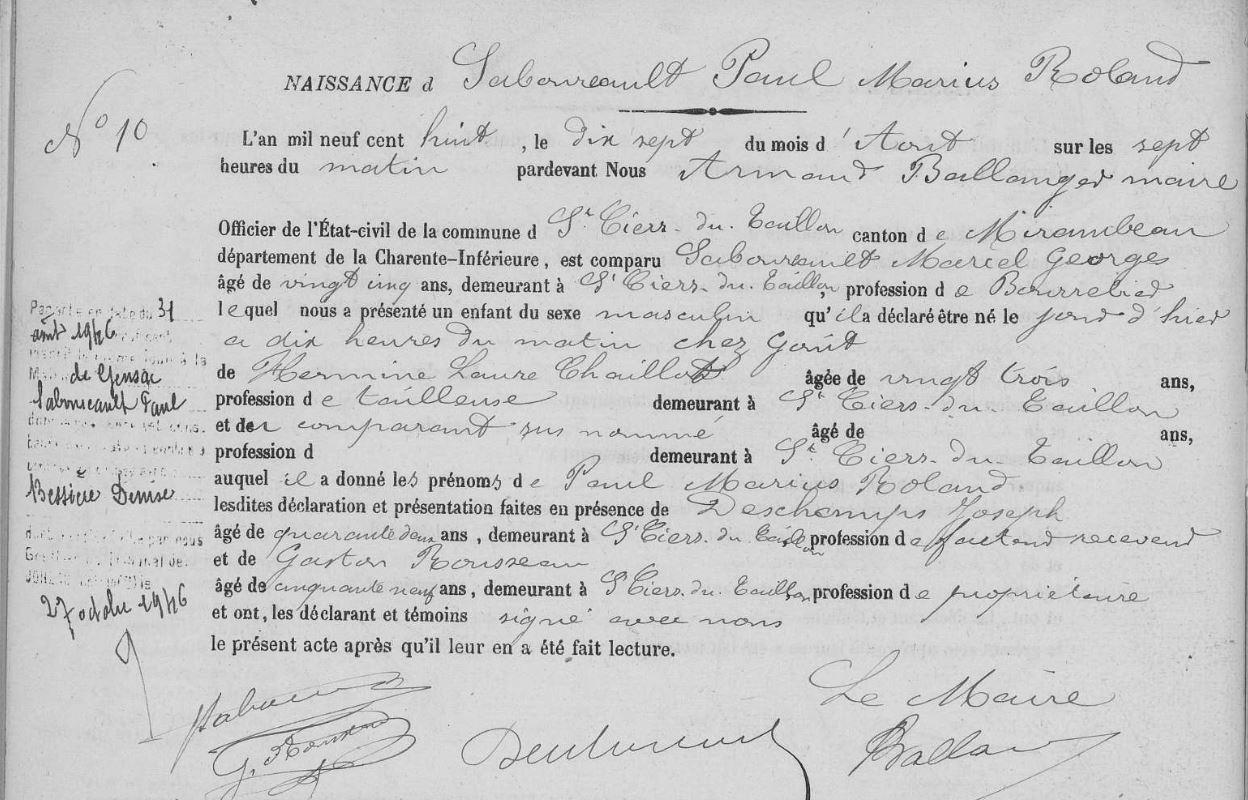 NAISSANCE d Saboureault Paul Marius Roland
No 10
L'an mil neuf cent huit, le dix sept du mois d'Août sur les sept
heures du matin pardevant Nous Armand Ballanger maire
Officier de l'État-civil de la commune d St Ciers-du-Taillon canton de Mirambeau
département de la Charente-Inférieure, est comparu Saboureault Marcel Georges
âgé de vingt cinq ans, demeurant à St Ciers-du-Taillon, profession de Bourrelier
lequel nous a présenté un enfant du sexe masculin qu'il a déclaré être né le jour d'hier
a dix heures du matin chez Goût
de Hermine Laure Chaillot âgée de vingt trois ans,
profession de tailleuse demeurant à St Ciers-du-Taillon
et de comparant sus nommé âgé de ans,
profession d demeurant à St Ciers-du-Taillon
auquel il a donné les prénoms de Paul Marius Roland
lesdites déclaration et présentation faites en présence de Deschamps Joseph
âgé de quarante deux ans, demeurant à St Ciers-du-Taillon profession de facteur receveur
et de Gaston Rousseau
âgé de cinquante neuf ans, demeurant à St Ciers-du-Taillon profession de propriétaire
et ont, les déclarant et témoins signé avec nous
le présent acte après qu'il leur en a été fait lecture.
Par acte en date du 31
août 1946
de Gensac
Saboureault Paul
Bessière Denise
27 octobre 1946
Le Maire
G. Rousseau